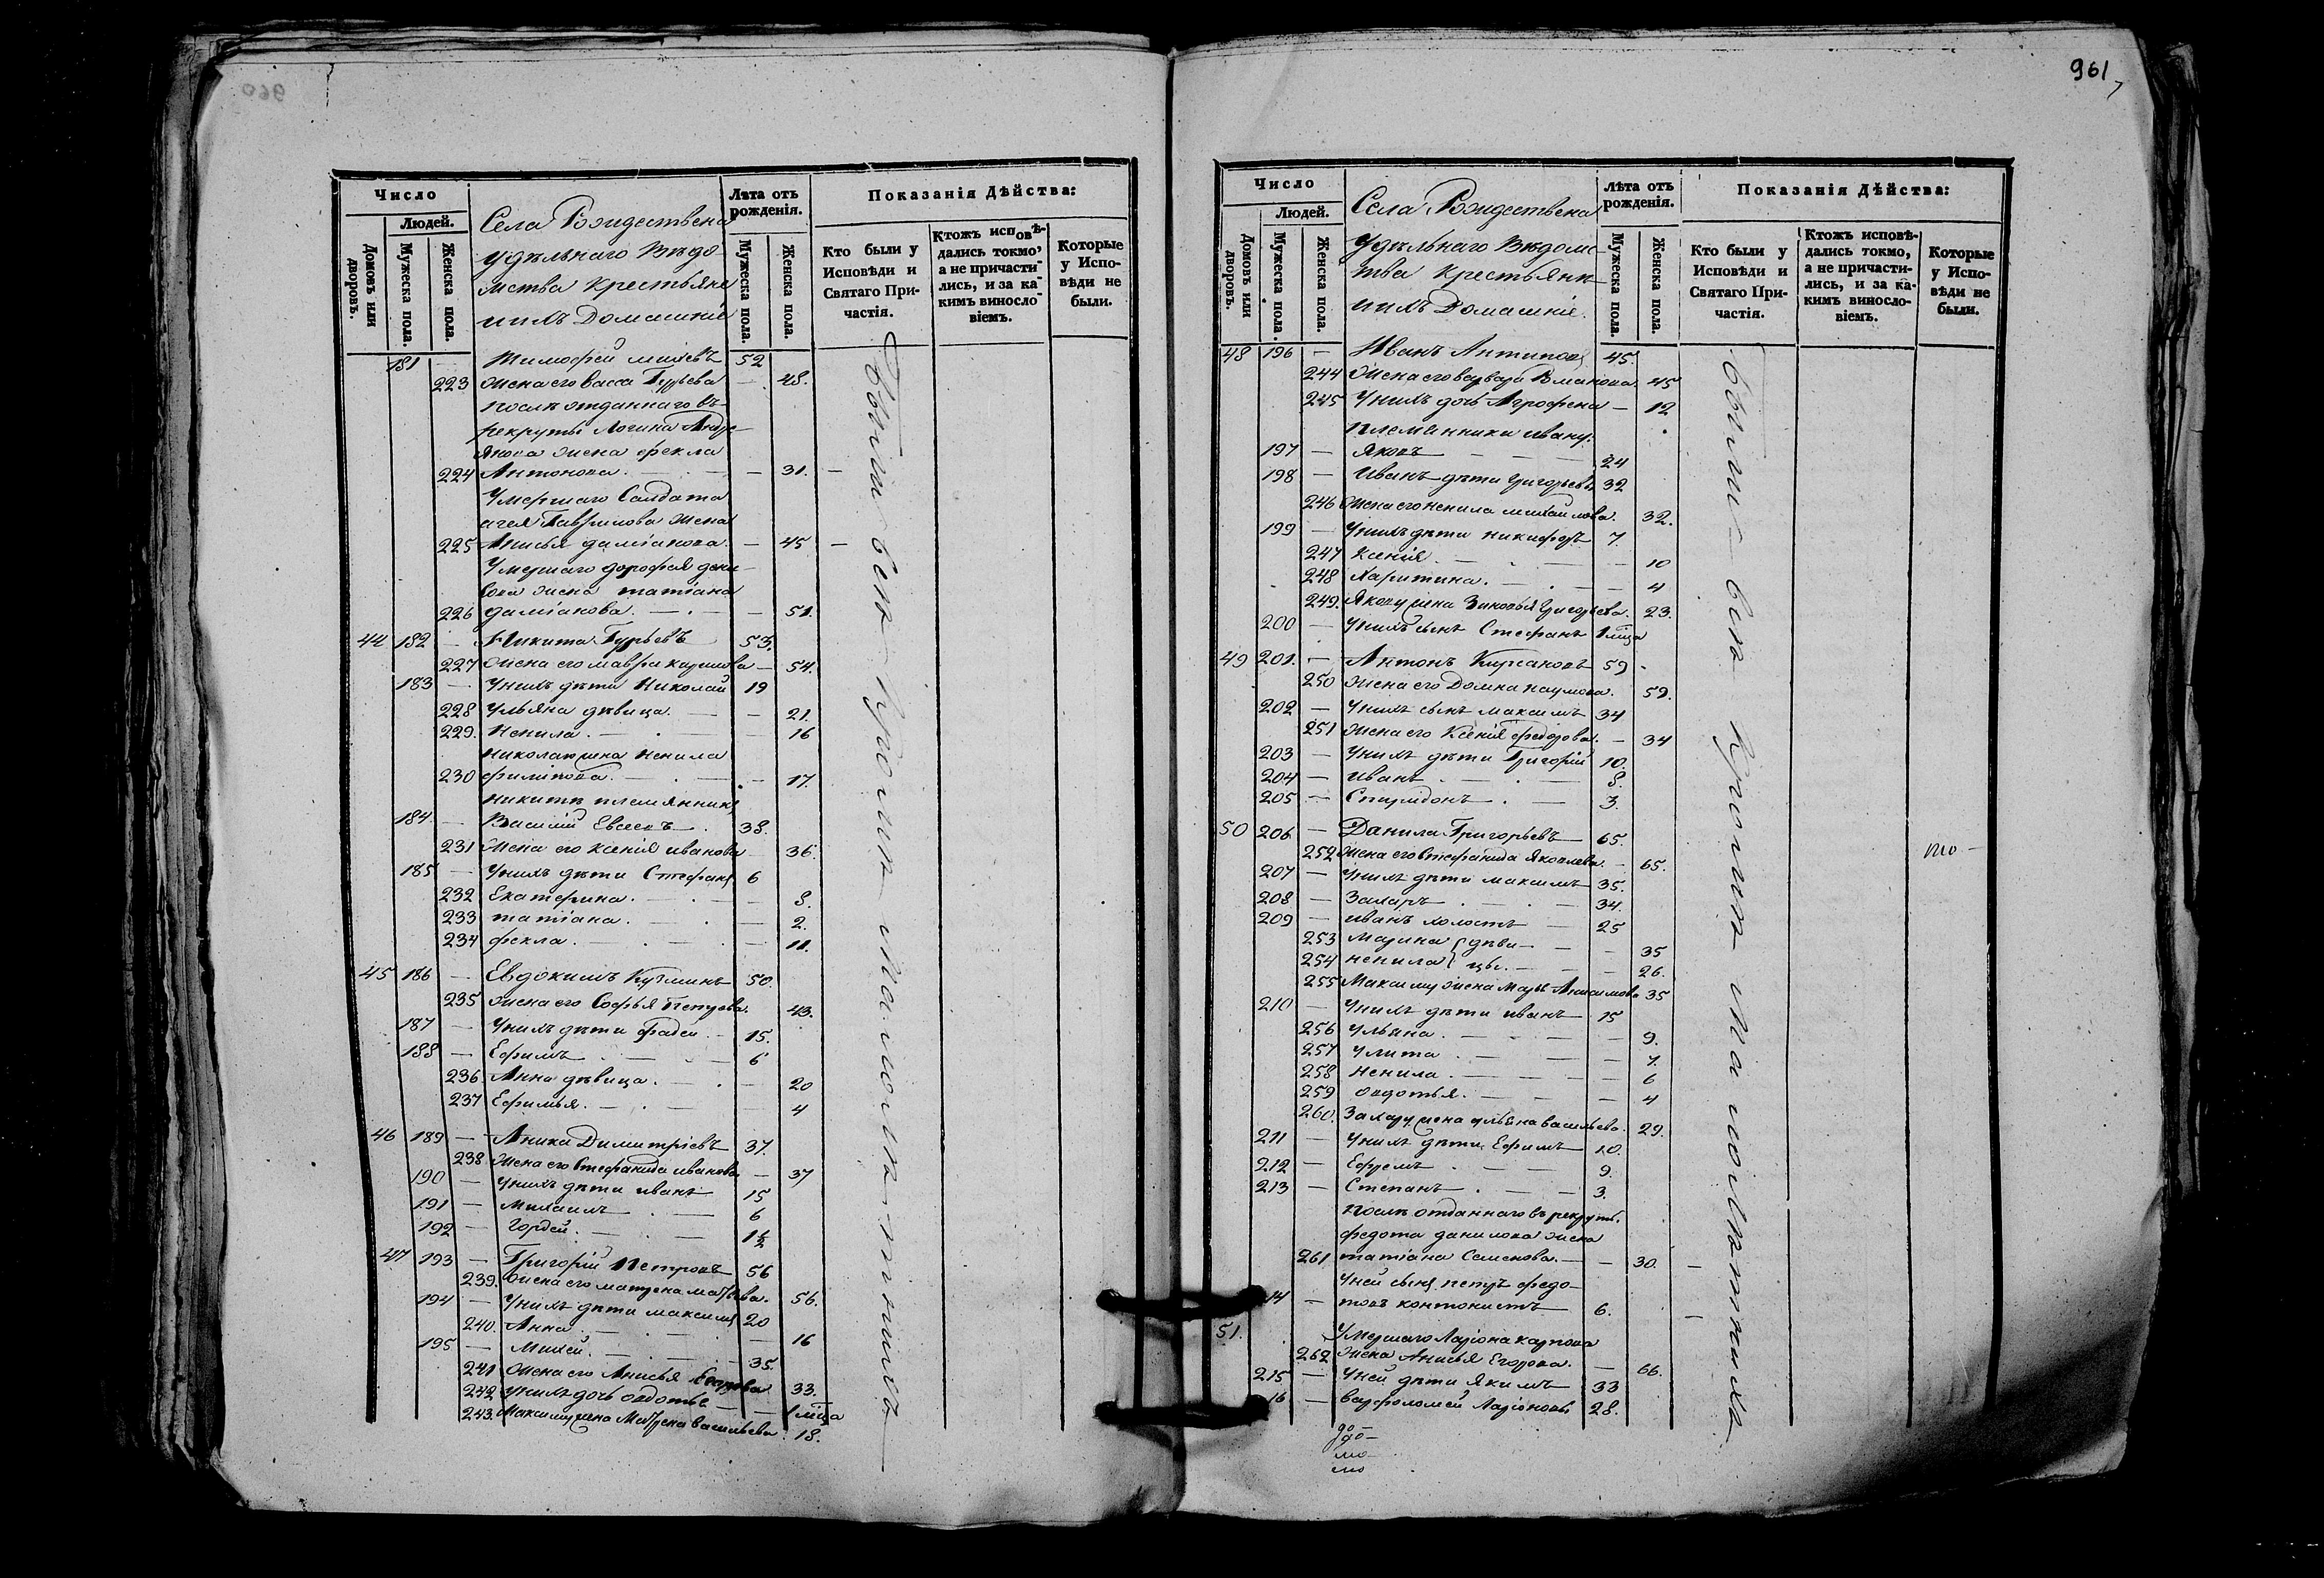 961
960
Число
Людей.
Домовъ или дворовъ.
Мужеска пола.
Женска пола.
Села Рождествена
Удѣльнаго Вѣдо-
мства Крестьяне
и ихъ Домашніе
Лѣта отъ рожденія.
Мужеска пола.
Женска пола.
Показанія Дѣйства:
Кто были у Исповѣди и Святаго Причастія.
Ктожъ исповѣдались токмо, а не причастились, и за какимъ винословіемъ.
Которые у Исповѣди не были.
181 — Тимофей Михѣевъ 52
223 Жена его Васса Гурьева — 48.
послѣ отданнаго въ
рекруты Логина Андр
янова жена Фекла
224 Антонова. — 31. —
Умершаго Солдата
Агея Гаврилова жена
225 Анисья Даміанова. — 45 —
Умершаго Дорофея
жена татіана
226 Даміанова. — 51.
44 182 — Никита Гурьевъ 53.
227 Жена его Мавра — 54.
183 — У нихъ дѣти Николай 19
228 Ульяна дѣвица. — 21.
229. Ненила. — 16
Николая жена Ненила
230 Филипова. — 17.
Никиты племянникъ
184. — Василий Евсеевъ. 38.
231 Жена его Ксения Иванова — 36.
185 — У нихъ дѣти Стефанъ 6
232 Екатерина. — 8.
233 татіана. — 2.
234 Фекла. — 11.
45 186 — Евдокимъ Кузминъ 50.
235 Жена его Софья Петрова. 43.
187 — У нихъ дѣти Фадей. — 15.
188 — Ефимъ — 6
236. Анна дѣвица. — 20
237 Ефимья. — 4
46 189 — Аника Димитріевъ 37.
238 Жена его Стефанида Иванова — 37
190 — У нихъ дѣти Иванъ 15
191 — Михаилъ — 6
192 — Гордей. — 1½
47 193 — Григорій Петровъ 56
239. Жена его Матрена 56.
194 — У нихъ дѣти Максимъ 20
240. Анна — 16
195 — Михей. — 35.
241 Жена его Анисья Егорова 33.
242 У нихъ дочь Овдотья — 1 мѣца
243. Максиму жена Матрена Васильева. 18.
Были вси кромѣ малолѣтнихъ
Число
Людей.
Домовъ или дворовъ.
Мужеска пола.
Женска пола.
Села Рождествена
Удѣльнаго Вѣдомс-
тва Крестьяне
и ихъ Домашніе.
Лѣта отъ рожденія.
Мужеска пола.
Женска пола.
Показанія Дѣйства:
Кто были у Исповѣди и Святаго Причастія.
Ктожъ исповѣдались токмо, а не причастились, и за какимъ винословіемъ.
Которые у Исповѣди не были.
48 196 — Иванъ Антиповъ 45.
244 Жена его Варвара 45
245 У нихъ дочь Агрофена — 12
племянники Ивану:
197 — Яковъ — 24
198 — Иванъ дѣти Григорьевы 32
246 Жена его Ненила Михаилова. 32.
199 — У нихъ дѣти Никифоръ 7.
247 Ксенія. — 10
248 Харитина. — 4
249. Якову жена Зиновья Григорьева. 23.
200 — У нихъ сынъ Стефанъ 1 мѣца
49 201. — Антонъ Кирсановъ 59
250 Жена его Домна Наумова. 59.
202 — У нихъ сынъ Максимъ 34
251 Жена его Ксенія Федорова. — 34
203 — У нихъ дѣти Григорій 10.
204 — Иванъ — 8.
205 — Спиридонъ. — 3.
50 206 — Данила Григорьевъ 65.
252 Жена его Стефанида Яковлева. — 65.
207 — У нихъ дѣти Максимъ 35.
208 — Захаръ — 34.
209 — Иванъ холостъ — 25
253 Марина } дѣви — 35
254 Ненила } цы. — 26.
255 Максиму жена Марья Анисимова 35
210 — У нихъ дѣти Иванъ 15
256 Ульяна. — 9.
257 Улита. — 7.
258 Ненила. — 6
259 Овдотья. — 4
260. Захару жена Ульяна Васильева. 29.
211 — У нихъ дѣти Ефимъ 10.
212 — Ефремъ — 9.
213 — Степанъ. — 3.
послѣ отданнаго въ рекруты.
Федота Данилова жена
261 татіана Семенова. — 30. —
У ней сынъ Петръ Федо-
14 — товъ контонистъ 6. —
51. Умершаго Ларіона Карпова
262 жена Анисья Егорова. — 66.
215 — У ней дѣти Якимъ 33
16 — Варфоломей Ларіоновы 28.
Были вси кромѣ малолѣтнихъ